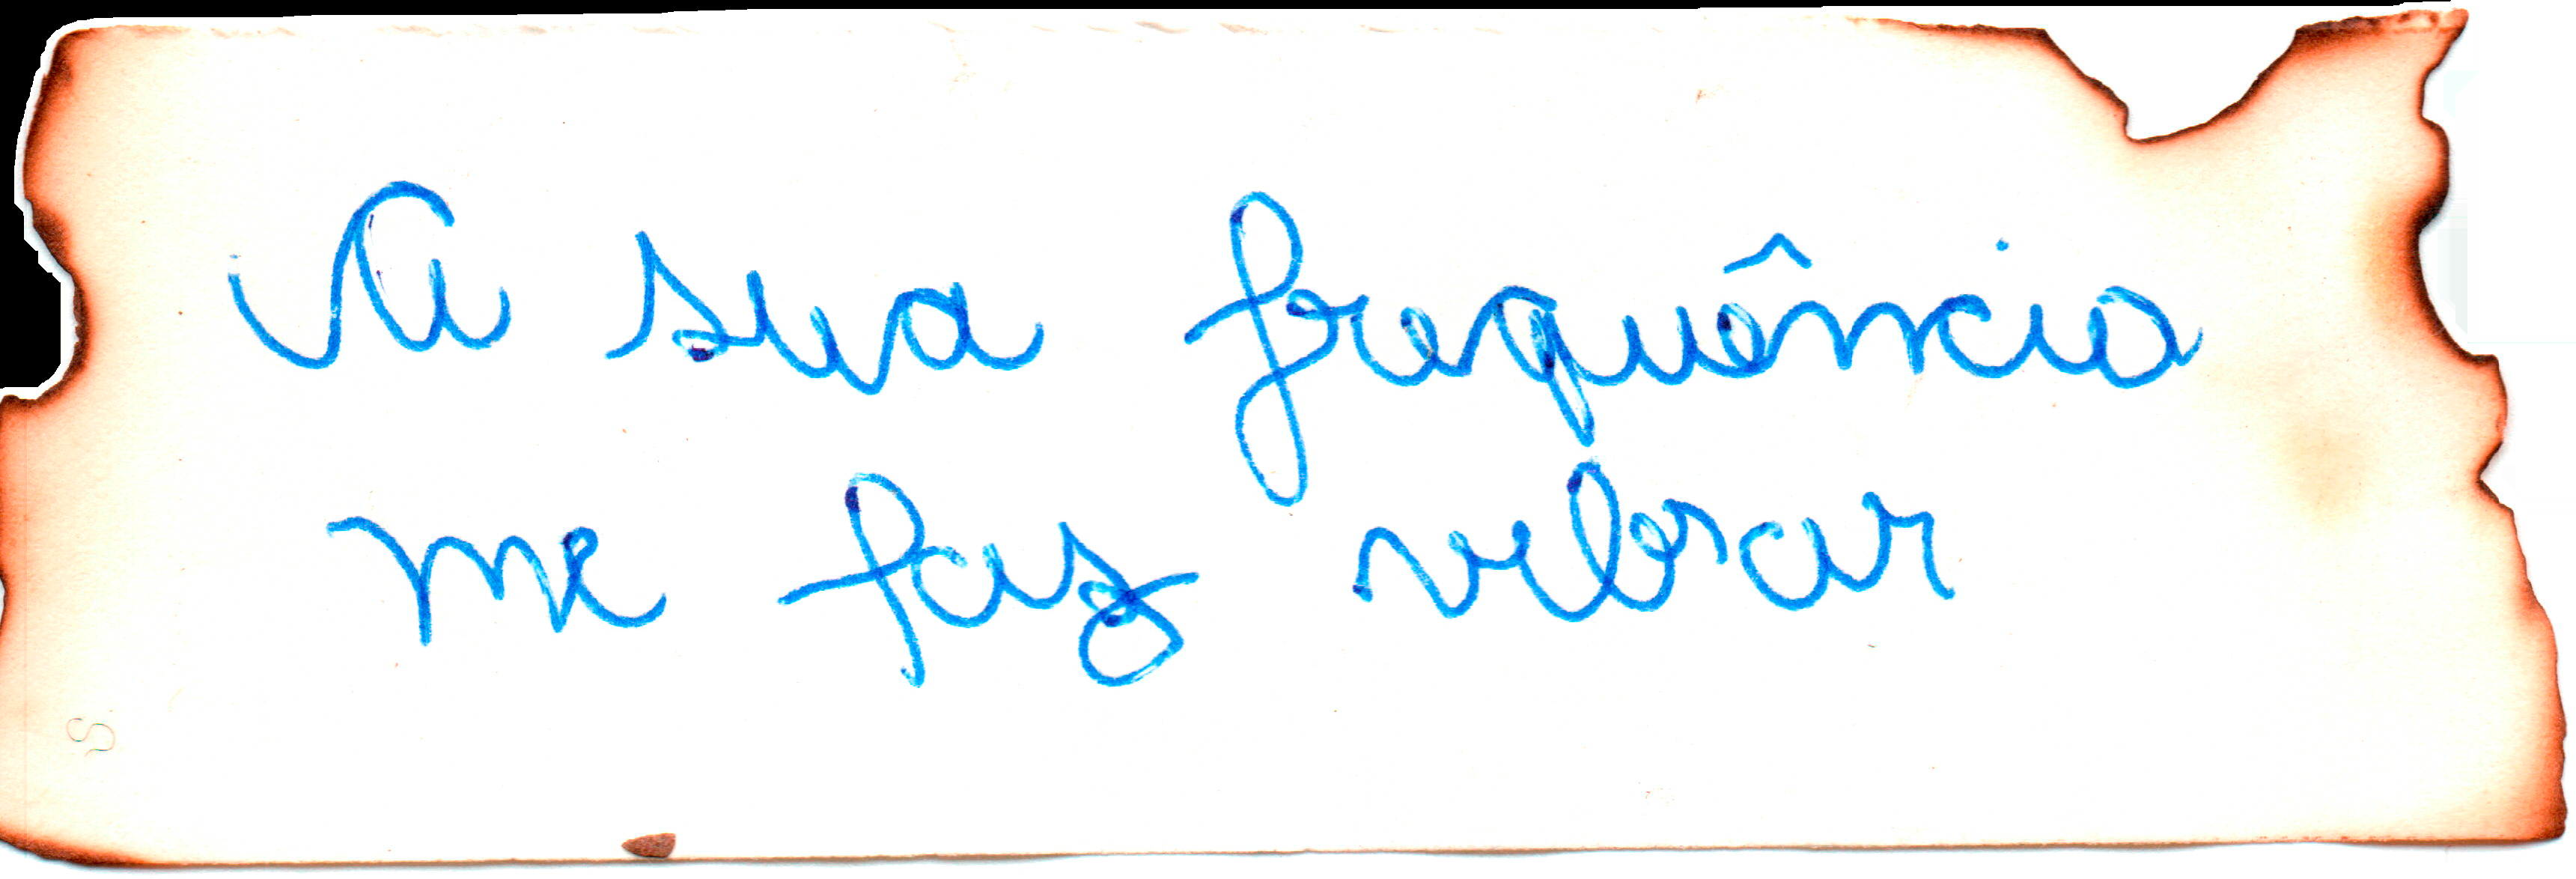 A sua frequência
me faz vibrar